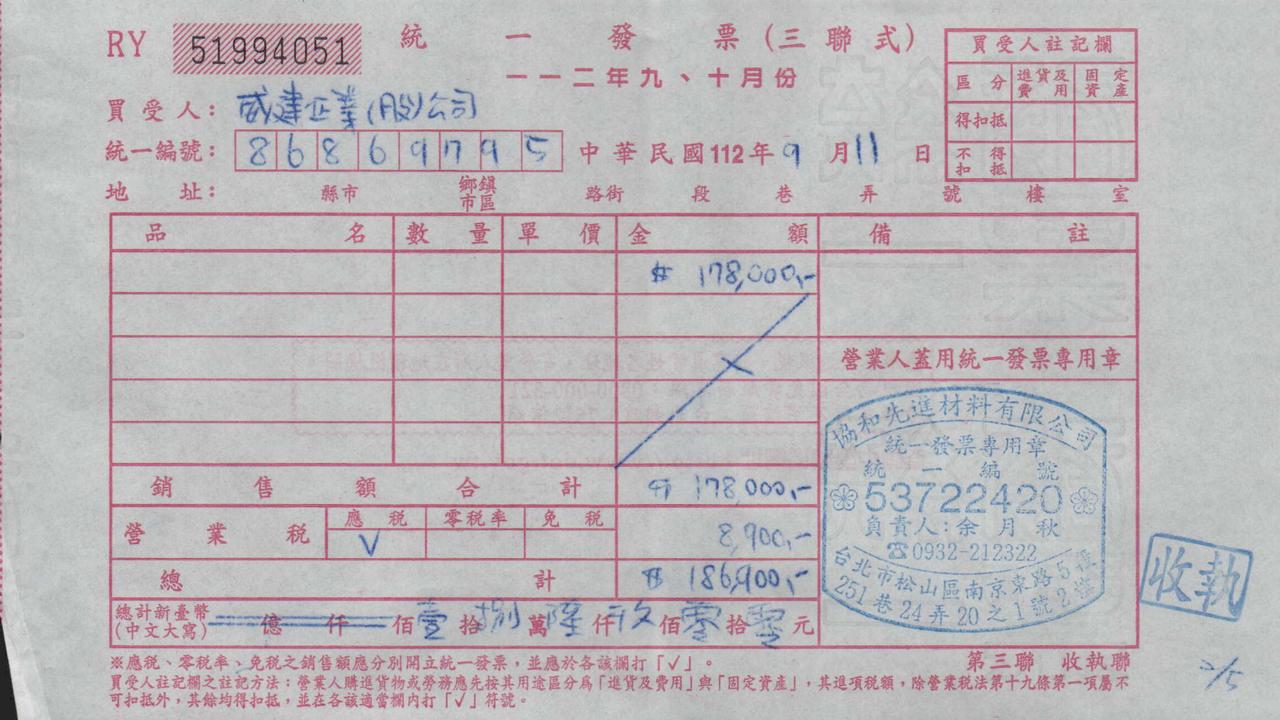 RY 51994051 統一發票(三聯式)
一一二年九、十月份
買受人註記欄
區分 進貨及費用 固定資產
得扣抵
不得扣抵
買受人: 威建企業(股)公司
統一編號: 86869795 中華民國112年9月11日
地址: 縣市 鄉鎮市區 路街 段 巷 弄 號 樓 室
品名 數量 單價 金額 備註
$ 178,000,-
營業人蓋用統一發票專用章
銷售額合計 $ 178,000,-
營業稅 應稅 零稅率 免稅 8,900,-
V
總計 $ 186,900,-
總計新臺幣(中文大寫) 億 仟 佰 壹 拾 捌 萬 陸 仟 玖 佰 零 拾 零 元
協和先進材料有限公司
統一發票專用章
統一編號
53722420
負責人:余月秋
☎0932-212322
台北市松山區南京東路5段
251巷24弄20之1號2樓
收執
※應稅、零稅率、免稅之銷售額應分別開立統一發票,並應於各該欄打「√」。
第三聯 收執聯
買受人註記欄之註記方法:營業人購進貨物或勞務應先按其用途區分為「進貨及費用」與「固定資產」,其進項稅額,除營業稅法第十九條第一項屬不
可扣抵外,其餘均得扣抵,並在各該適當欄內打「√」符號。
2/5